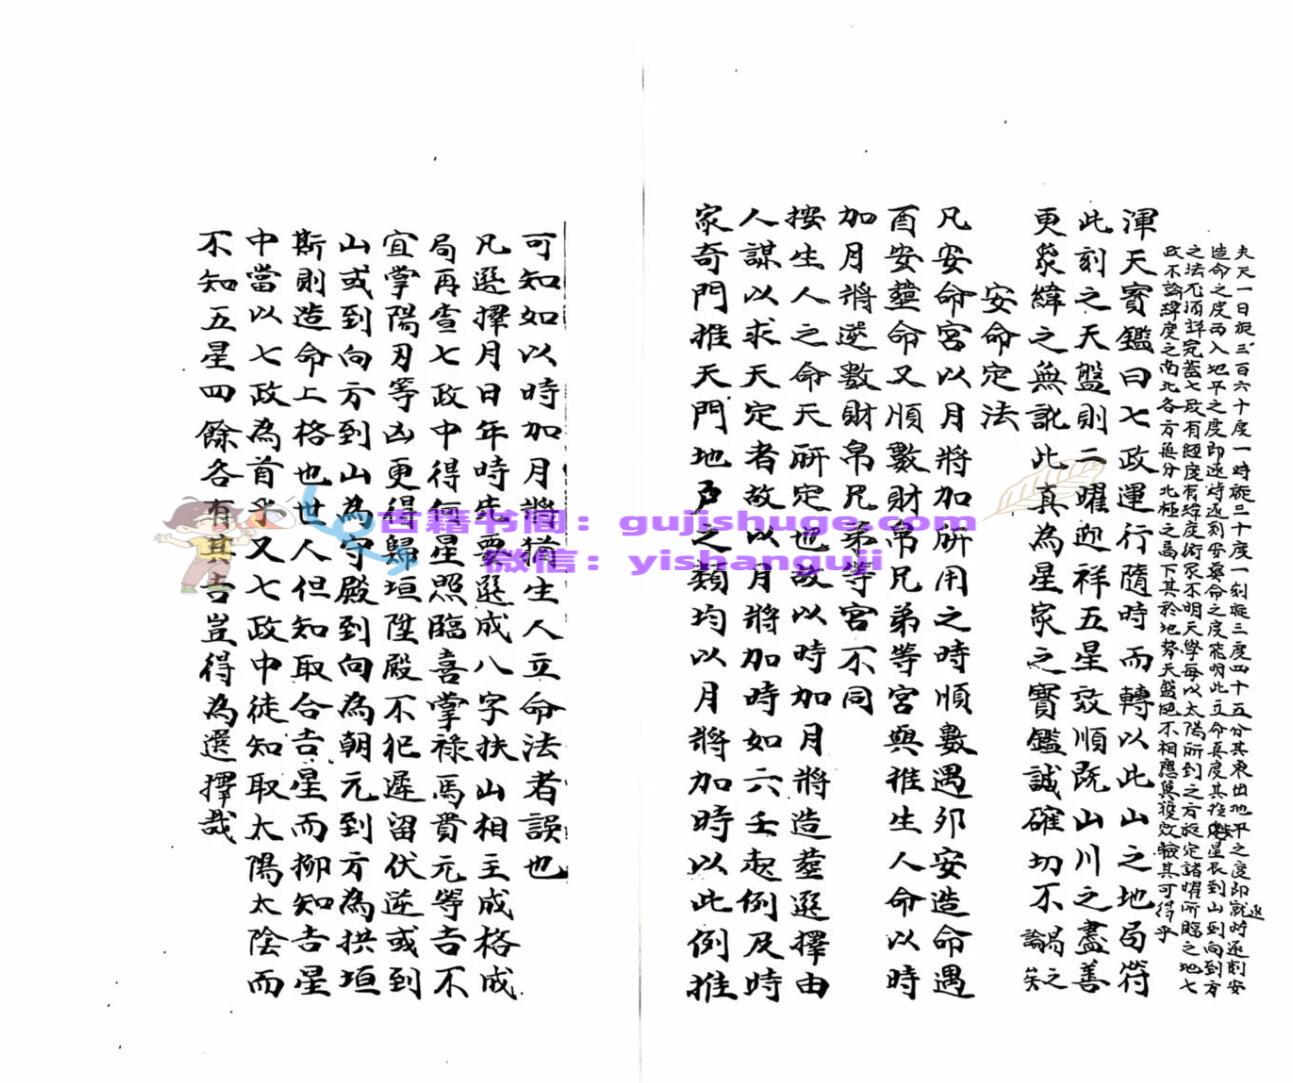 夫天一日旋三百六十度一時旋三十度一刻旋三度四十五分其東出地平之度即就時逐刻安
造命之度西入地平之度即逐時逐刻安葬命之度能明此立命真度其在星辰到山到向到方
之法尤須詳完蓋七政有經度有緯度術家不明天學每以太陽所到之方旋定諸曜所臨之地七
政不論緯度之南北各方無分北極之高下其於地勢天盤絕不相應其獲效驗其可得乎
渾天寶鑑曰七政運行隨時而轉以此山之地局符
此刻之天盤則二曜迎祥五星效順既山川之盡善
更象緯之無訛此真為星家之寶鑑誠確切不論之
安命定法
凡安命宮以月將加所用之時順數遇卯安造命遇
酉安葬命又順數財帛兄弟等宮與推生人命以時
加月將逆數財帛兄弟等宮不同
按生人之命天所定也故以時加月將造葬選擇由
人謀以求天定者故以月將加時如六壬起例及時
家奇門推天門地戶之類均以月將加時以此例推
可知如以時加月將猶生人立命法者誤也
凡選擇月日年時先要選成八字扶山相主成格成
局再查七政中得何星照臨喜掌祿馬貴元等吉不
宜掌陽刃等凶更得歸垣陞殿不犯遲留伏逆或到
山或到向方到山為守殿到向為朝元到方為拱垣
斯則造命上格也世人但知取合吉星而抑知吉星
中當以七政為首乎又七政中徒知取太陽太陰而
不知五星四餘各有其吉豈得為選擇哉
古籍书阁：gujishuge.com
微信：yishanguji